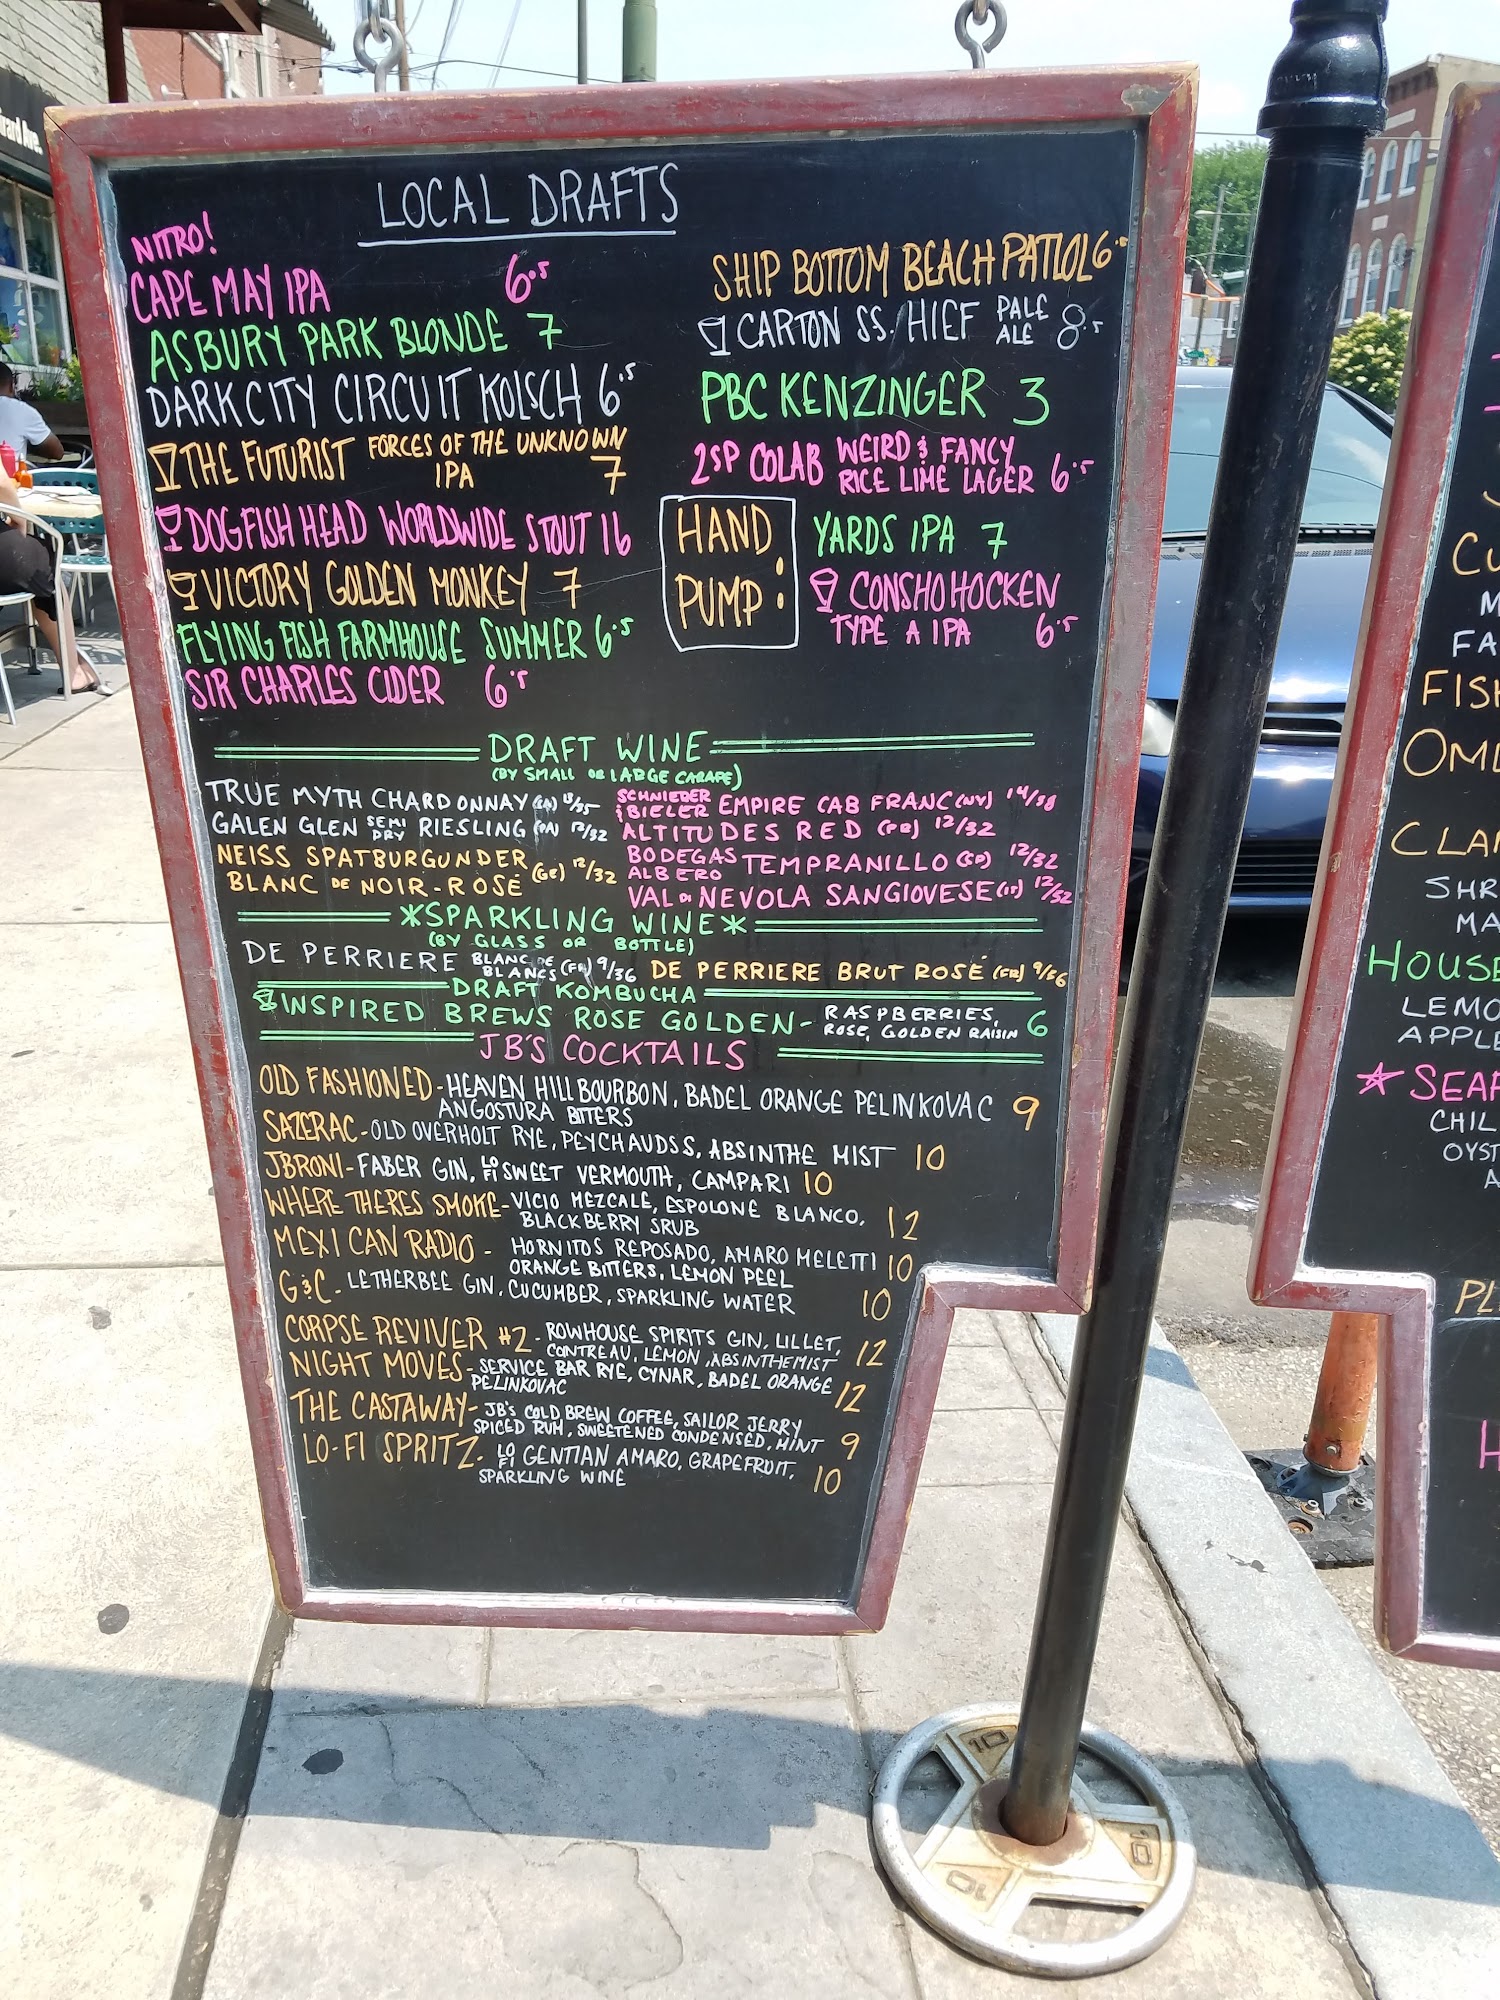 Grand Ave.
LOCAL DRAFTS
NITRO!
CAPE MAY IPA 6.5
ASBURY PARK BLONDE 7
DARK CITY CIRCUIT KOLSCH 6.5
THE FUTURIST FORCES OF THE UNKNOWN
IPA 7
DOGFISH HEAD WORLDWIDE STOUT 16
VICTORY GOLDEN MONKEY 7
FLYING FISH FARMHOUSE SUMMER 6.5
SIR CHARLES CIDER 6.5
SHIP BOTTOM BEACH PATLOL 6.5
CARTON SS. HIEF PALE
ALE 8.5
PBC KENZINGER 3
2SP COLAB WEIRD & FANCY
RICE LIME LAGER 6.5
HAND
PUMP:
YARDS IPA 7
CONSHOHOCKEN
TYPE A IPA 6.5
DRAFT WINE
(BY SMALL OR LARGE CARAFE)
TRUE MYTH CHARDONNAY (CA) 13/35
GALEN GLEN SEMI DRY RIESLING (PA) 12/32
NEISS SPATBURGUNDER
BLANC DE NOIR-ROSÉ (GE) 12/32
SCHNIEBER
& BIELER EMPIRE CAB FRANC (NY) 14/38
ALTITUDES RED 12/32
BODEGAS
ALBERO TEMPRANILLO (SP) 12/32
VAL DI NEVOLA SANGIOVESE (IT) 12/32
*SPARKLING WINE*
(BY GLASS OR BOTTLE)
DE PERRIERE BLANC DE
BLANCS (FR) 9/36
DE PERRIERE BRUT ROSÉ (FR) 9/36
DRAFT KOMBUCHA
INSPIRED BREWS ROSE GOLDEN - RASPBERRIES,
ROSE, GOLDEN RAISIN 6
JB'S COCKTAILS
OLD FASHIONED - HEAVEN HILL BOURBON, BADEL ORANGE PELINKOVAC
ANGOSTURA BITTERS 9
SAZERAC - OLD OVERHOLT RYE, PEYCHAUDSS, ABSINTHE MIST 10
JBRONI - FABER GIN, LO FI SWEET VERMOUTH, CAMPARI 10
WHERE THERES SMOKE - VICIO MEZCALE, ESPOLONE BLANCO,
BLACKBERRY SRUB 12
MEXICAN RADIO - HORNITOS REPOSADO, AMARO MELETTI
ORANGE BITTERS, LEMON PEEL 10
G&C - LETHERBEE GIN, CUCUMBER, SPARKLING WATER 10
CORPSE REVIVER #2 - ROWHOUSE SPIRITS GIN, LILLET,
CONTREAU, LEMON, ABSINTHE MIST 12
NIGHT MOVES - SERVICE BAR RYE, CYNAR, BADEL ORANGE
PELINKOVAC 12
THE CASTAWAY - JB'S COLD BREW COFFEE, SAILOR JERRY
SPICED RUM, SWEETENED CONDENSED, MINT 9
LO-FI SPRITZ - LO FI GENTIAN AMARO, GRAPEFRUIT,
SPARKLING WINE 10
FISH
CLA
SHR
MA
HOUSE
LEMO
APPLE
SEAF
CHIL
OYST
PL
H
10
10
10